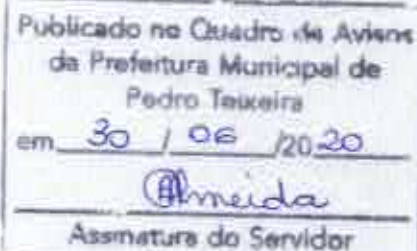 Publicado no Quadro de Avisos
da Prefeitura Municipal de
Pedro Teixeira
em 30 / 06 /2020
Almeida
Assinatura do Servidor